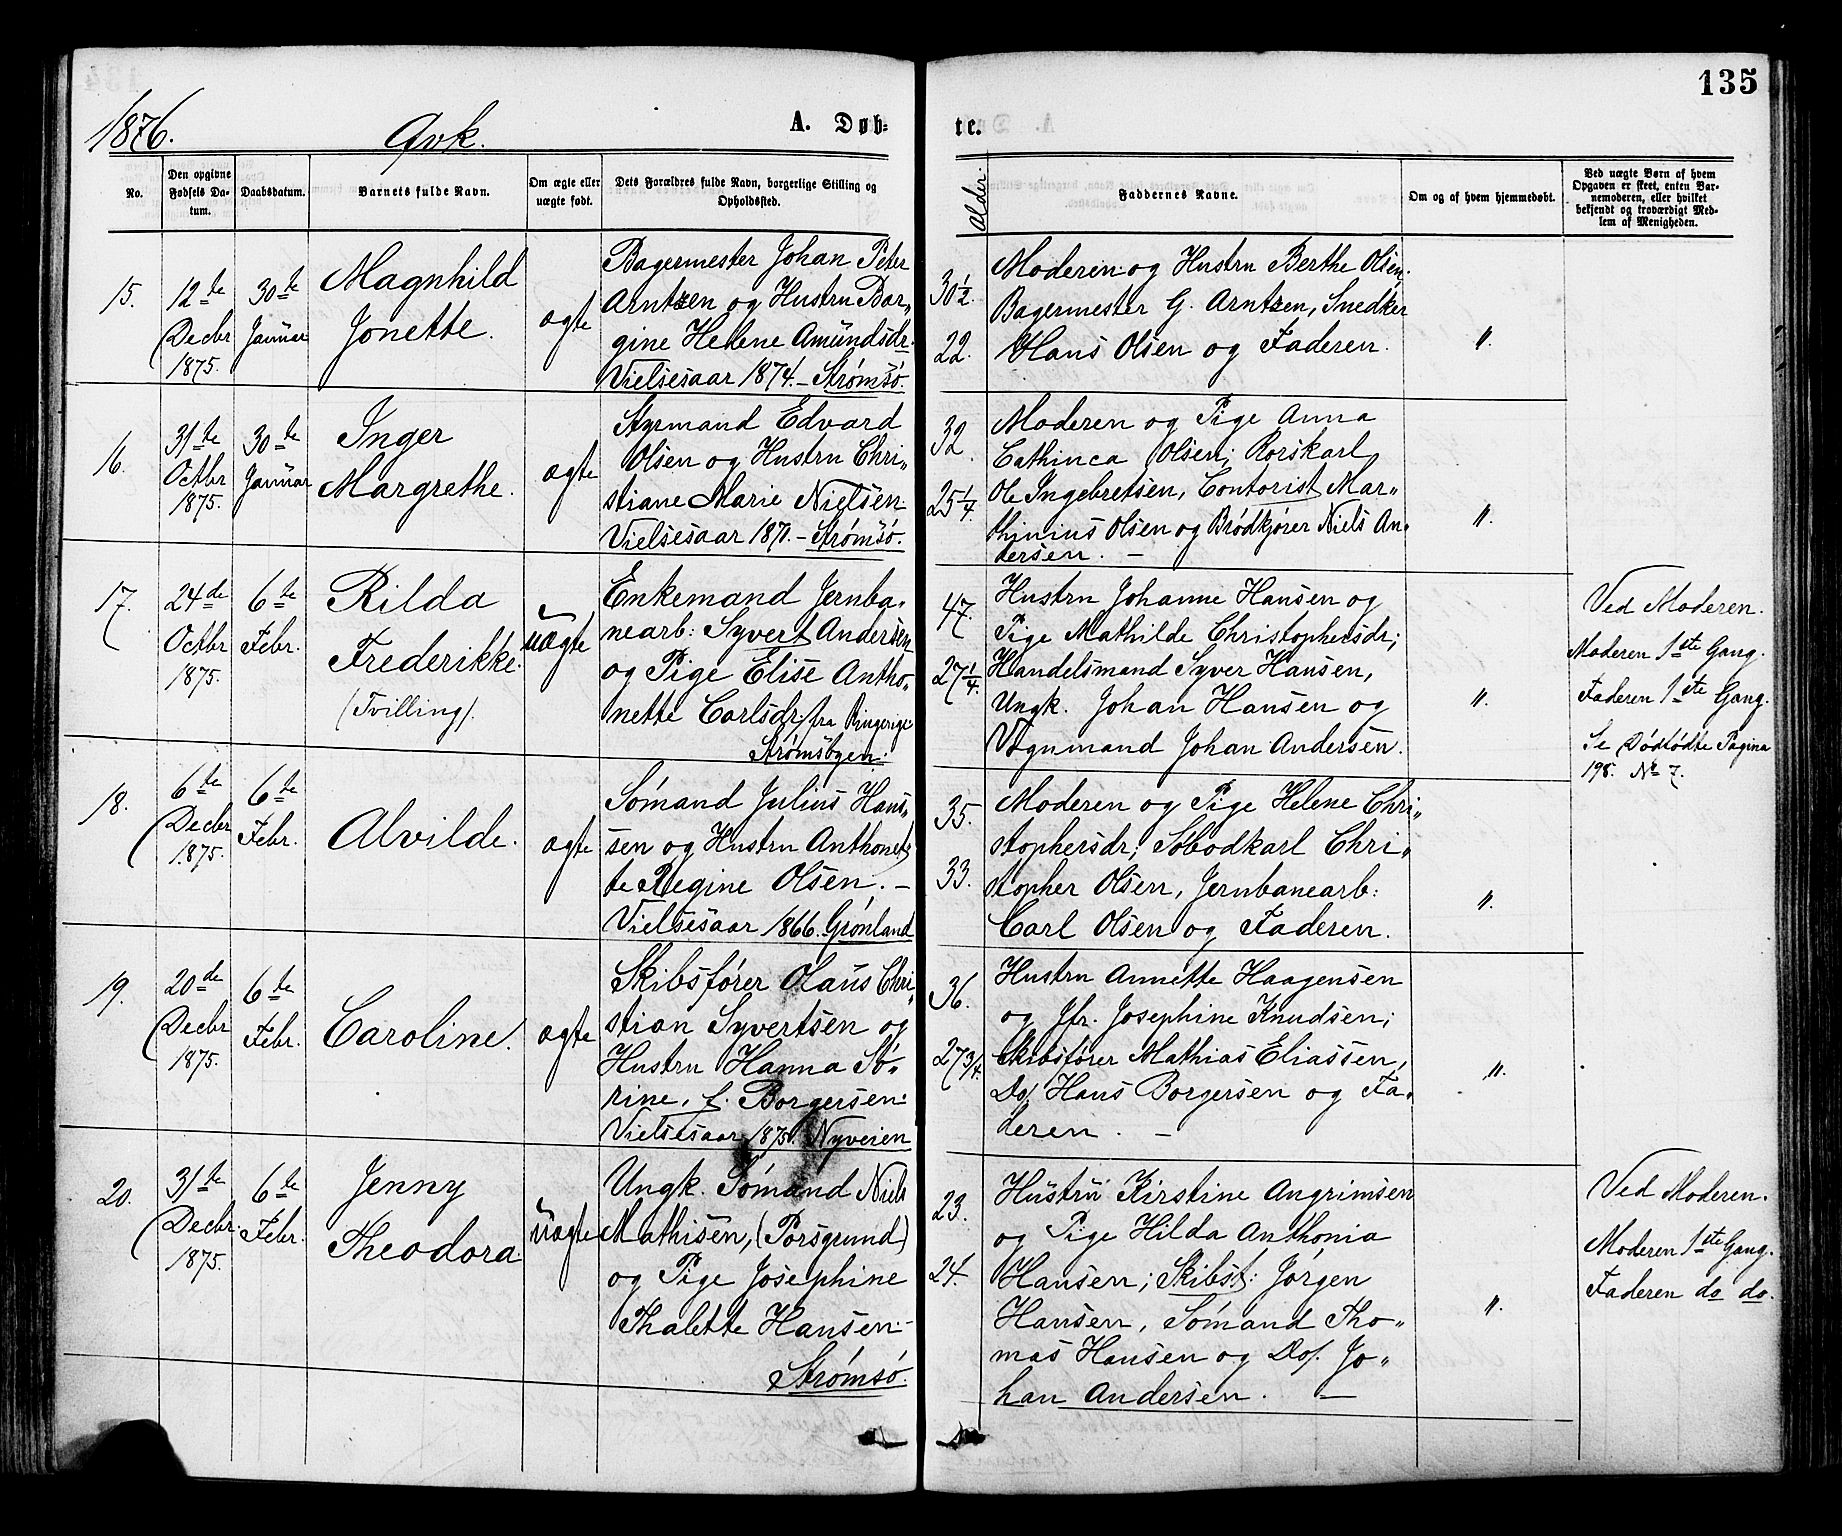 135
1876.
Qvk.
A. Døb-
te.
No.
Den opgivne Fødsels Datum.
Daabsdatum.
Barnets fulde Navn.
Om ægte eller uægte født.
Dets Forældres fulde Navn, borgerlige Stilling og Opholdssted.
Alder.
Faddernes Navne.
Om og af hvem hjemmedøbt.
Ved uægte Børn af hvem Opgaven er skeet, enten Barnemoderen, eller hvilket bekjendt og troværdigt Medlem af Menigheden.
15.
12te
Decbr
1875.
30te
Januar
Magnhild
Jonette.
ægte
Bagermester Johan Peter
Arntzen og Hustru Bor-
gine Helene Amundsdr.
Vielsesaar 1874. - Strømsö.
30 1/2.
22.
Moderen og Hustru Berthe Olsen.
Bagermester G. Arntzen, Snedker
Hans Olsen og Faderen.
"
16.
31te
Octbr
1875.
30te
Januar
Inger
Margrethe.
ægte
Styrmand Edvard
Olsen og Hustru Chri-
stiane Marie Nielsen.
Vielsesaar 1871. - Strømsö.
32.
25 1/4.
Moderen og Pige Anna
Cathinca Olsen; Rorskarl
Ole Ingebretsen, Contorist Mar-
thinius Olsen og Brödkjører Niels An-
dersen. -
"
17.
24de
Octbr
1875.
6te
Febr.
Rilda
Frederikke.
(Tvilling).
uægte
Enkemand Jernba-
nearb: Syvert Andersen
og Pige Elise Antho-
nette Carlsdr. fra Ringerige
Strømsbyen.
47.
27 1/4.
Hustru Johanne Hansen og
Pige Mathilde Christophersdr;
Handelsmand Syver Hansen,
Ungk. Johan Hansen og
Vognmand Johan Andersen.
"
Ved Moderen.
Moderen 1ste Gang.
Faderen 1ste Gang.
Se Dødfødte Pagina
198. No 7.
18.
6te
Decbr
1875.
6te
Febr.
Alvilde.
ægte
Sømand Julius Han-
sen og Hustru Anthonet-
te Regine Olsen. -
Vielsesaar 1866. Grønland
35.
33.
Moderen og Pige Helene Chri-
stophersdr; Söbodkarl Chri-
stopher Olsen, Jernbanearb:
Carl Olsen og Faderen.
"
19.
20de
Decbr
1875.
6te
Febr.
Caroline.
ægte
Skibsfører Olaus Chri-
stian Syvertsen og
Hustru Hanna Sö-
rine, f. Borgersen.
Vielsesaar 1875. Nyveien
36.
27 3/4.
Hustru Annette Haagensen
og Jfr. Josephine Knudsen;
Skibsfører Mathias Eliassen,
Do. Hans Borgersen og Fa-
deren. -
"
20.
31te
Decbr.
1875.
6te
Febr.
Jenny
Theodora.
uægte
Ungk. Sømand Niels
Mathisen, (Porsgrund)
og Pige Josephine
Thalette Hansen.
Strømsö.
23.
24.
Hustru Kirstine Angrimsen
og Pige Hilda Anthonia
Hansen; Skibst: Jörgen
Hansen, Sømand Tho-
mas Hansen og Do. Jo-
han Andersen. -
"
Ved Moderen.
Moderen 1ste Gang.
Faderen do do.